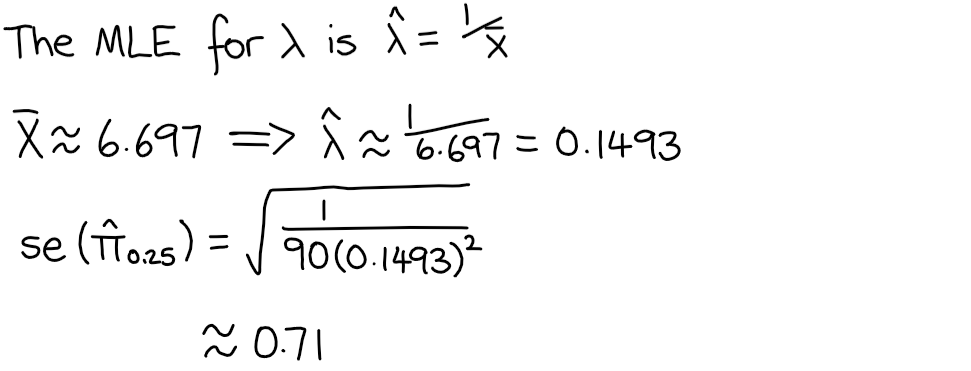 The MLE for λ is λ̂ = 1/x̄
X̄ ≈ 6.697 ⟹ λ̂ ≈ 1/6.697 = 0.1493
se(π̂₀.₂₅) = √(1/(90(0.1493)²))
≈ 0.71